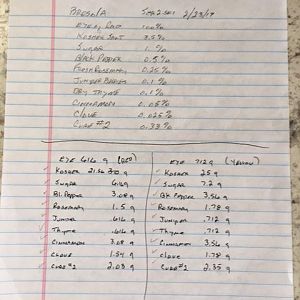 Bresaola 2/23/17
Eye of Rnd 100%
Kosher Salt 3.5%
Sugar 1.%
Black Pepper 0.5%
Fresh Rosemary 0.25%
Juniper Berries 0.1%
Dry Thyme 0.1%
Cinnamon 0.05%
Clove 0.025%
Cure #2 0.33%
Eye 616 g (Red)
Kosher 21.56 g
Sugar 6.16 g
Bl. Pepper 3.08 g
Rosemary 1.5 g
Juniper .616 g
Thyme .616 g
Cinnamon 3.08 g
Clove 1.54 g
Cure #2 2.03 g
Eye 712 g (Yellow)
Kosher 25 g
Sugar 7.2 g
Blk Pepper 3.56 g
Rosemary 1.78 g
Juniper .712 g
Thyme .712 g
Cinnamon 3.56 g
Clove 1.78 g
Cure #2 2.35 g